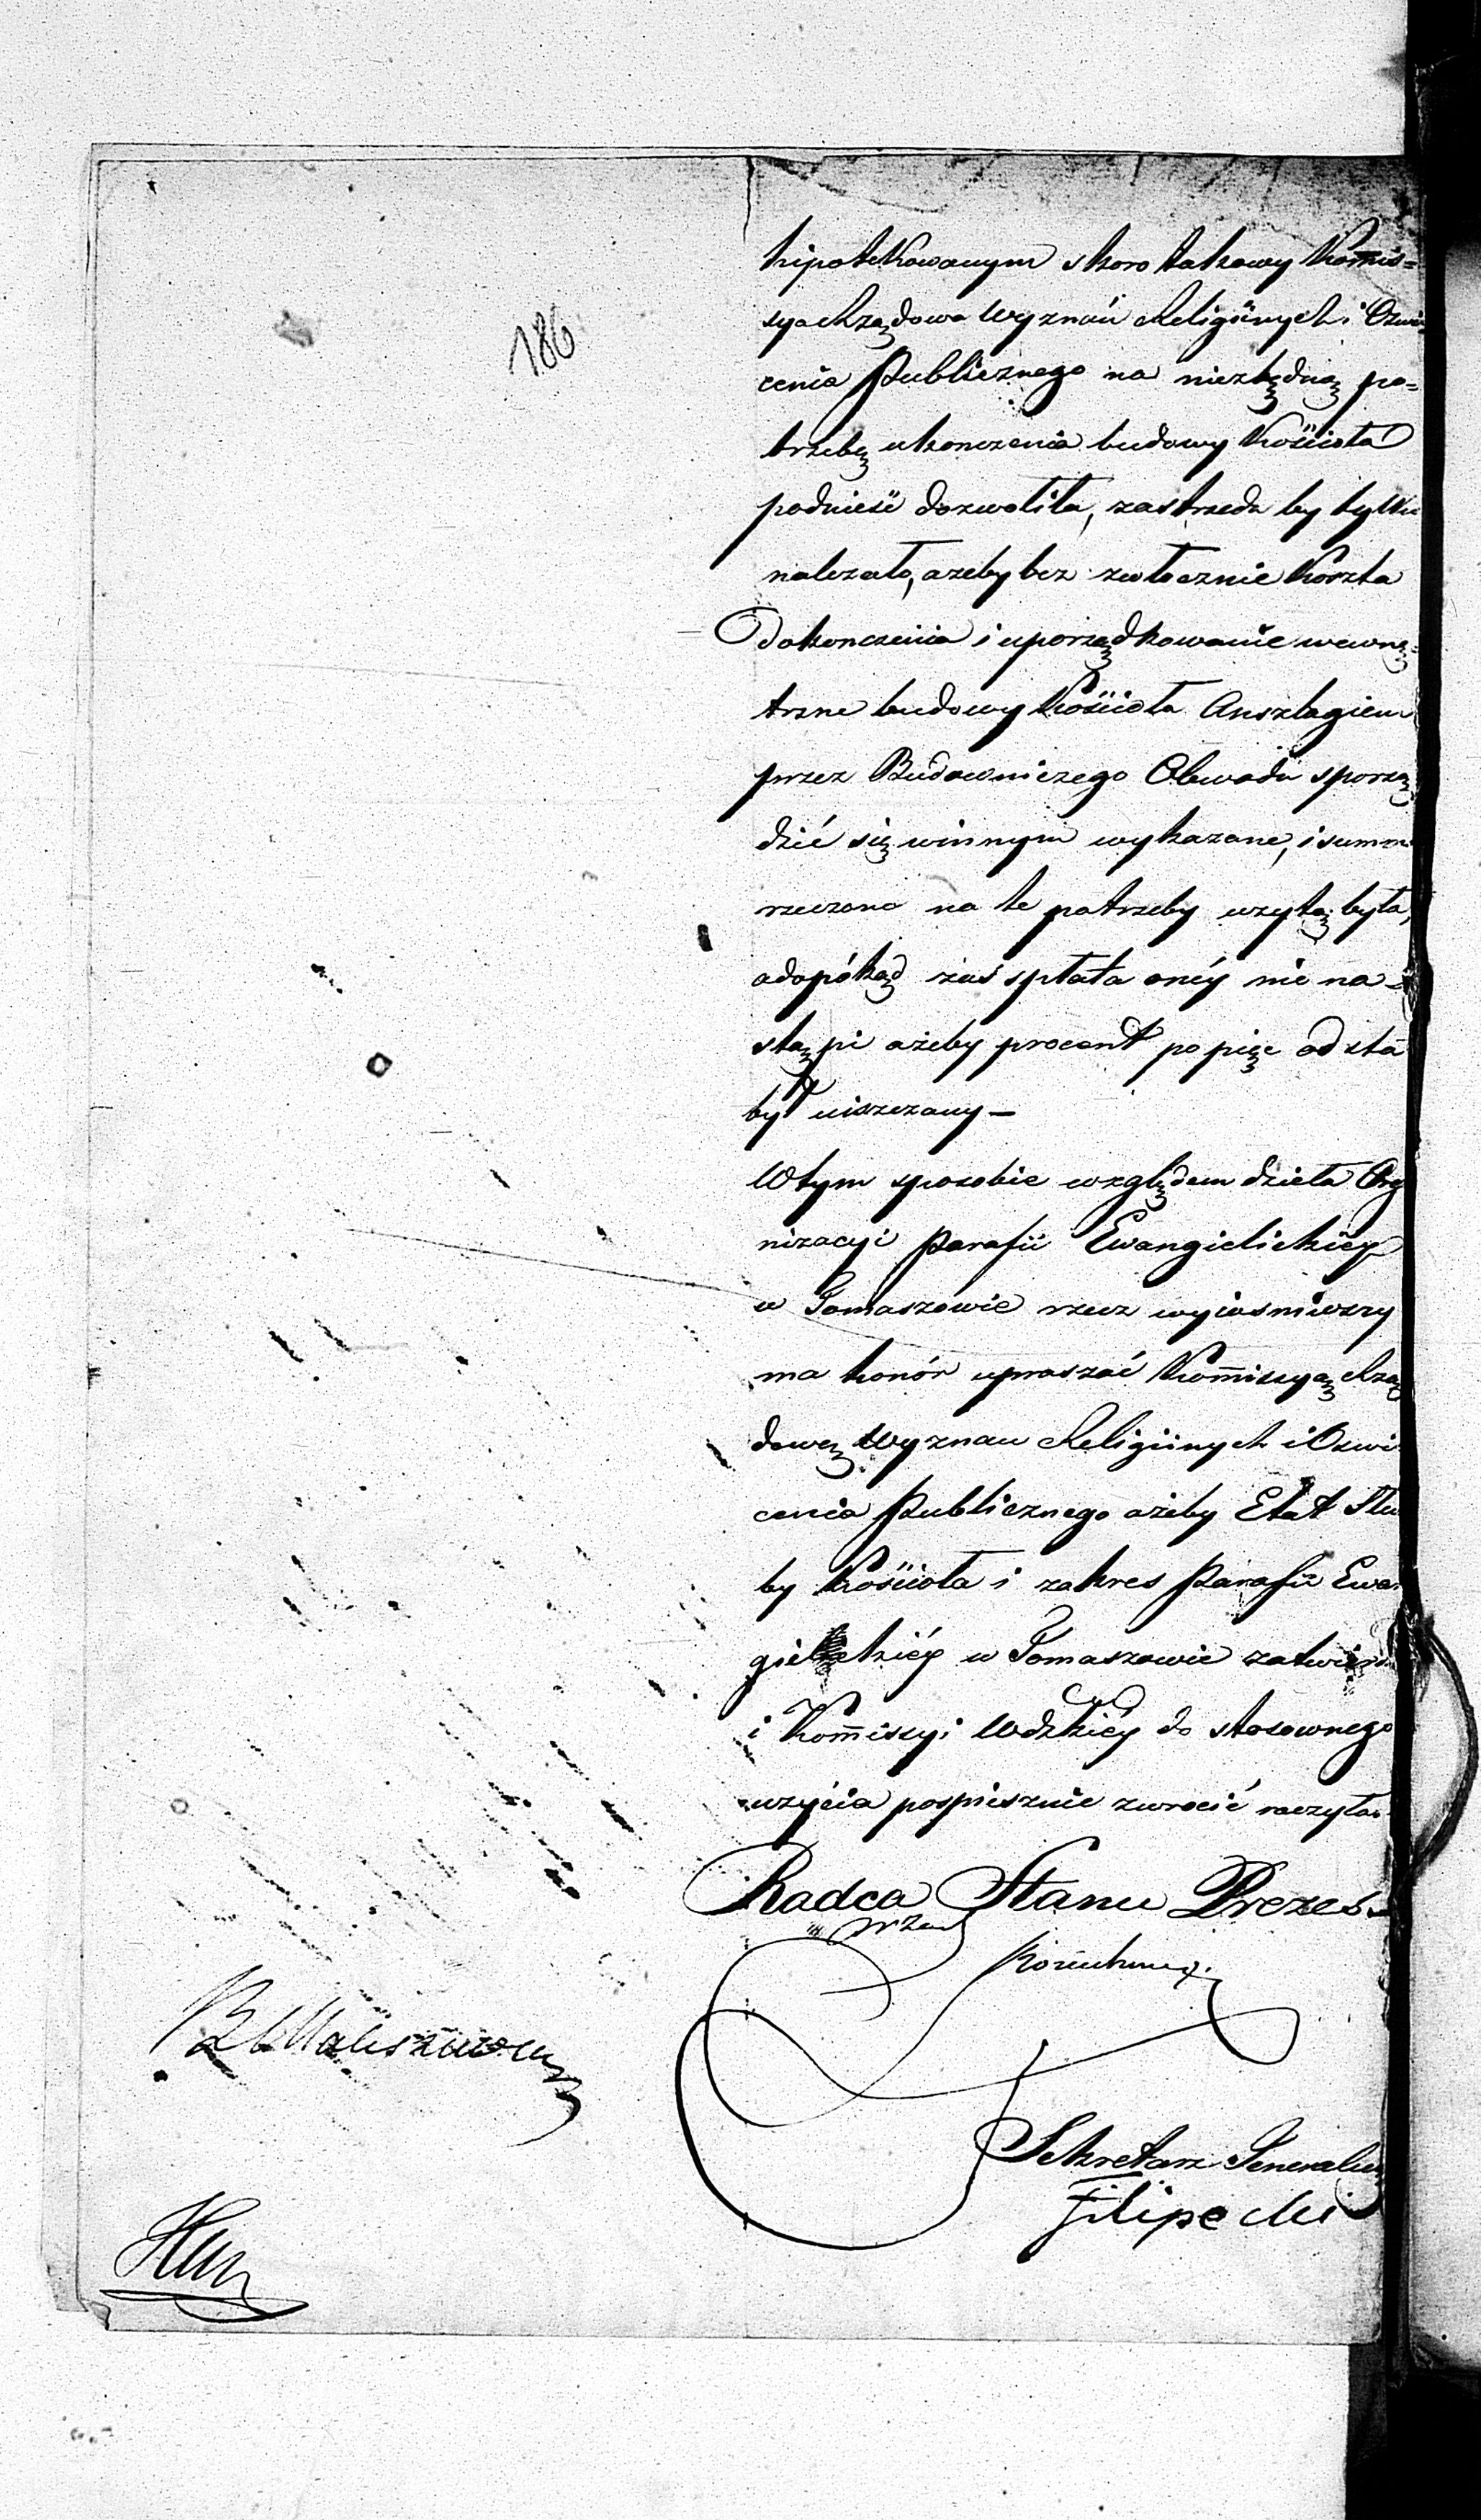 186
hipotekowanym skoro takowy Kom̄is=
sya Rządowa Wyznań Religiinych i Oświe
cenia Publicznego na niezbędną po=
trzebę ukonczenia budowy Kościoła
podnieść dozwoliła, zastrzedz by tylko
należało, ażeby bez zwłocznie Koszta
dokonczenia i uporządkowanie wewnę=
trzne budowy Kościoła Anszlagiem
przez Budowniczego Obwodu sporzą
dzić się winnym wykazane, i summa
rzeczona na te potrzeby użytą była,
adopókąd zaś spłata onéy nie na=
stąpi ażeby procent po pięć od sta
był uiszczany —
W tym sposobie względem dzieła Orga
nizacyi Parafii Ewangielickiey
w Tomaszowie rzecz wyiasniwszy
ma honór upraszać Kom̄issyą Rzą
dową Wyznan Religiinych i Oswie
cenia Publicznego ażeby Etat Słu
by Kościoła i zakres Parafii Ewan
gielickiéy w Tomaszowie zatwierdz
i Kom̄issyi Wdzkiéy do stosownego
użycia pospiesznie zwrocić raczyła.
Radca Stanu Prezes
Sekretarz Generalny
Filipecki